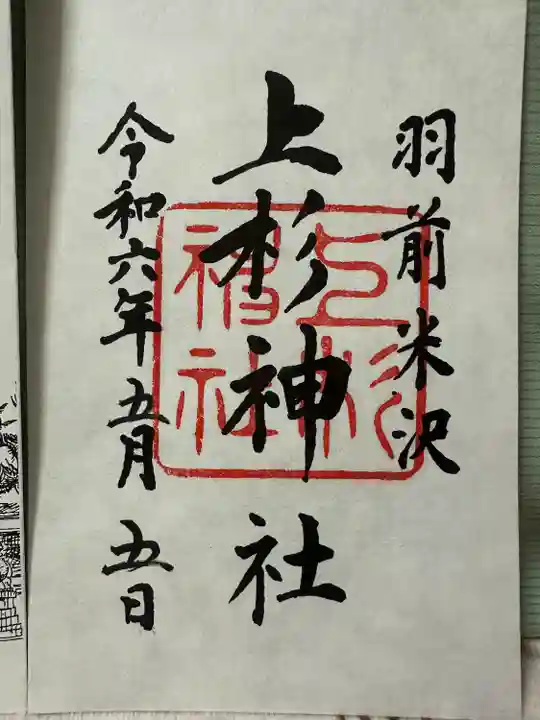 羽前米沢
上杉神社
令和六年五月五日
上杉
神社